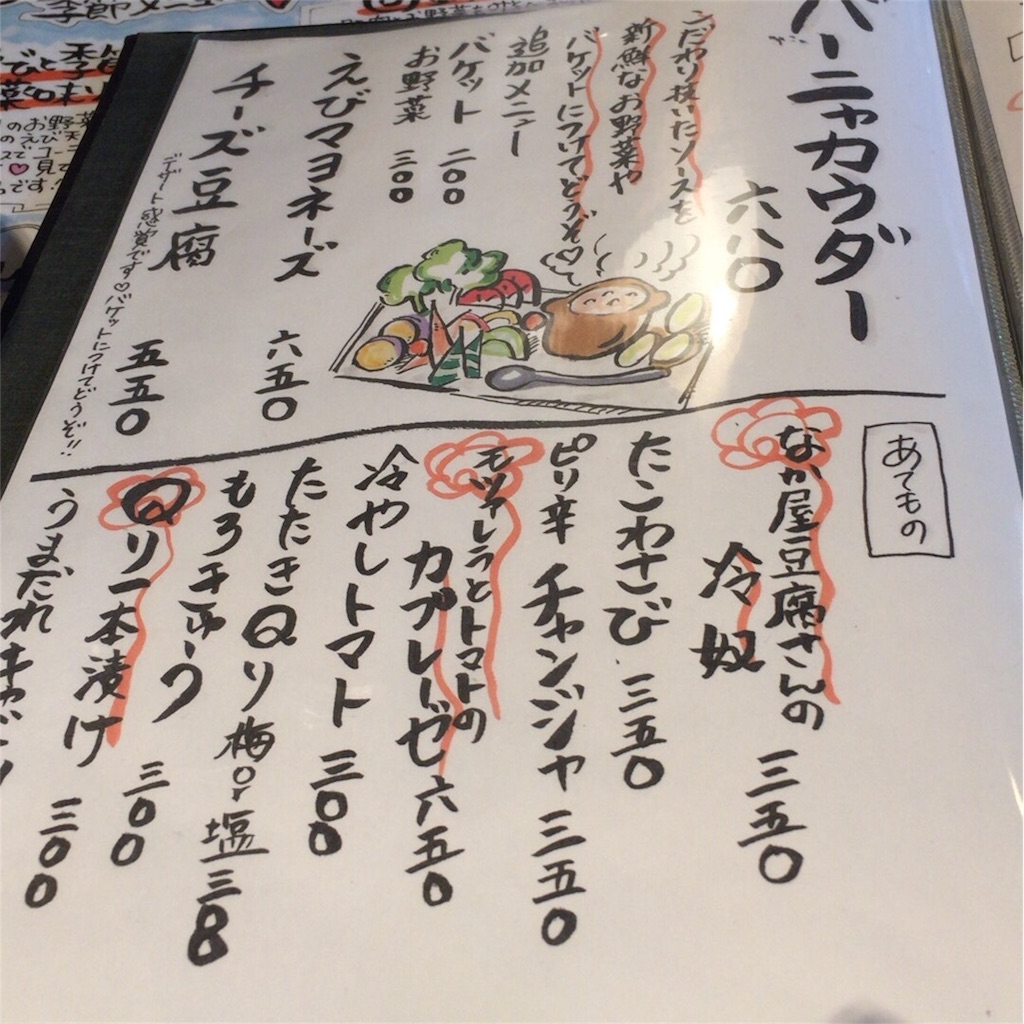 バーニャカウダー
六八〇
こだわり抜いたソースを
新鮮なお野菜や
バケットにつけてどうぞ♡
追加メニュー
バケット 二〇〇
お野菜 三〇〇
えびマヨネーズ 六五〇
チーズ豆腐 五五〇
デザート感覚です♡バケットにつけてどうぞ!!
あてもの
なか屋豆腐さんの
冷奴 三五〇
たこわさび 三五〇
ピリ辛 チャンジャ 三五〇
モッツァレラとトマトの
カプレーゼ 六五〇
冷やしトマト 三〇〇
たたきQり 梅or塩 三〇〇
もろきゅう 三〇〇
Qり一本漬け 三〇〇
うまだれキャベツ
季節メニュー